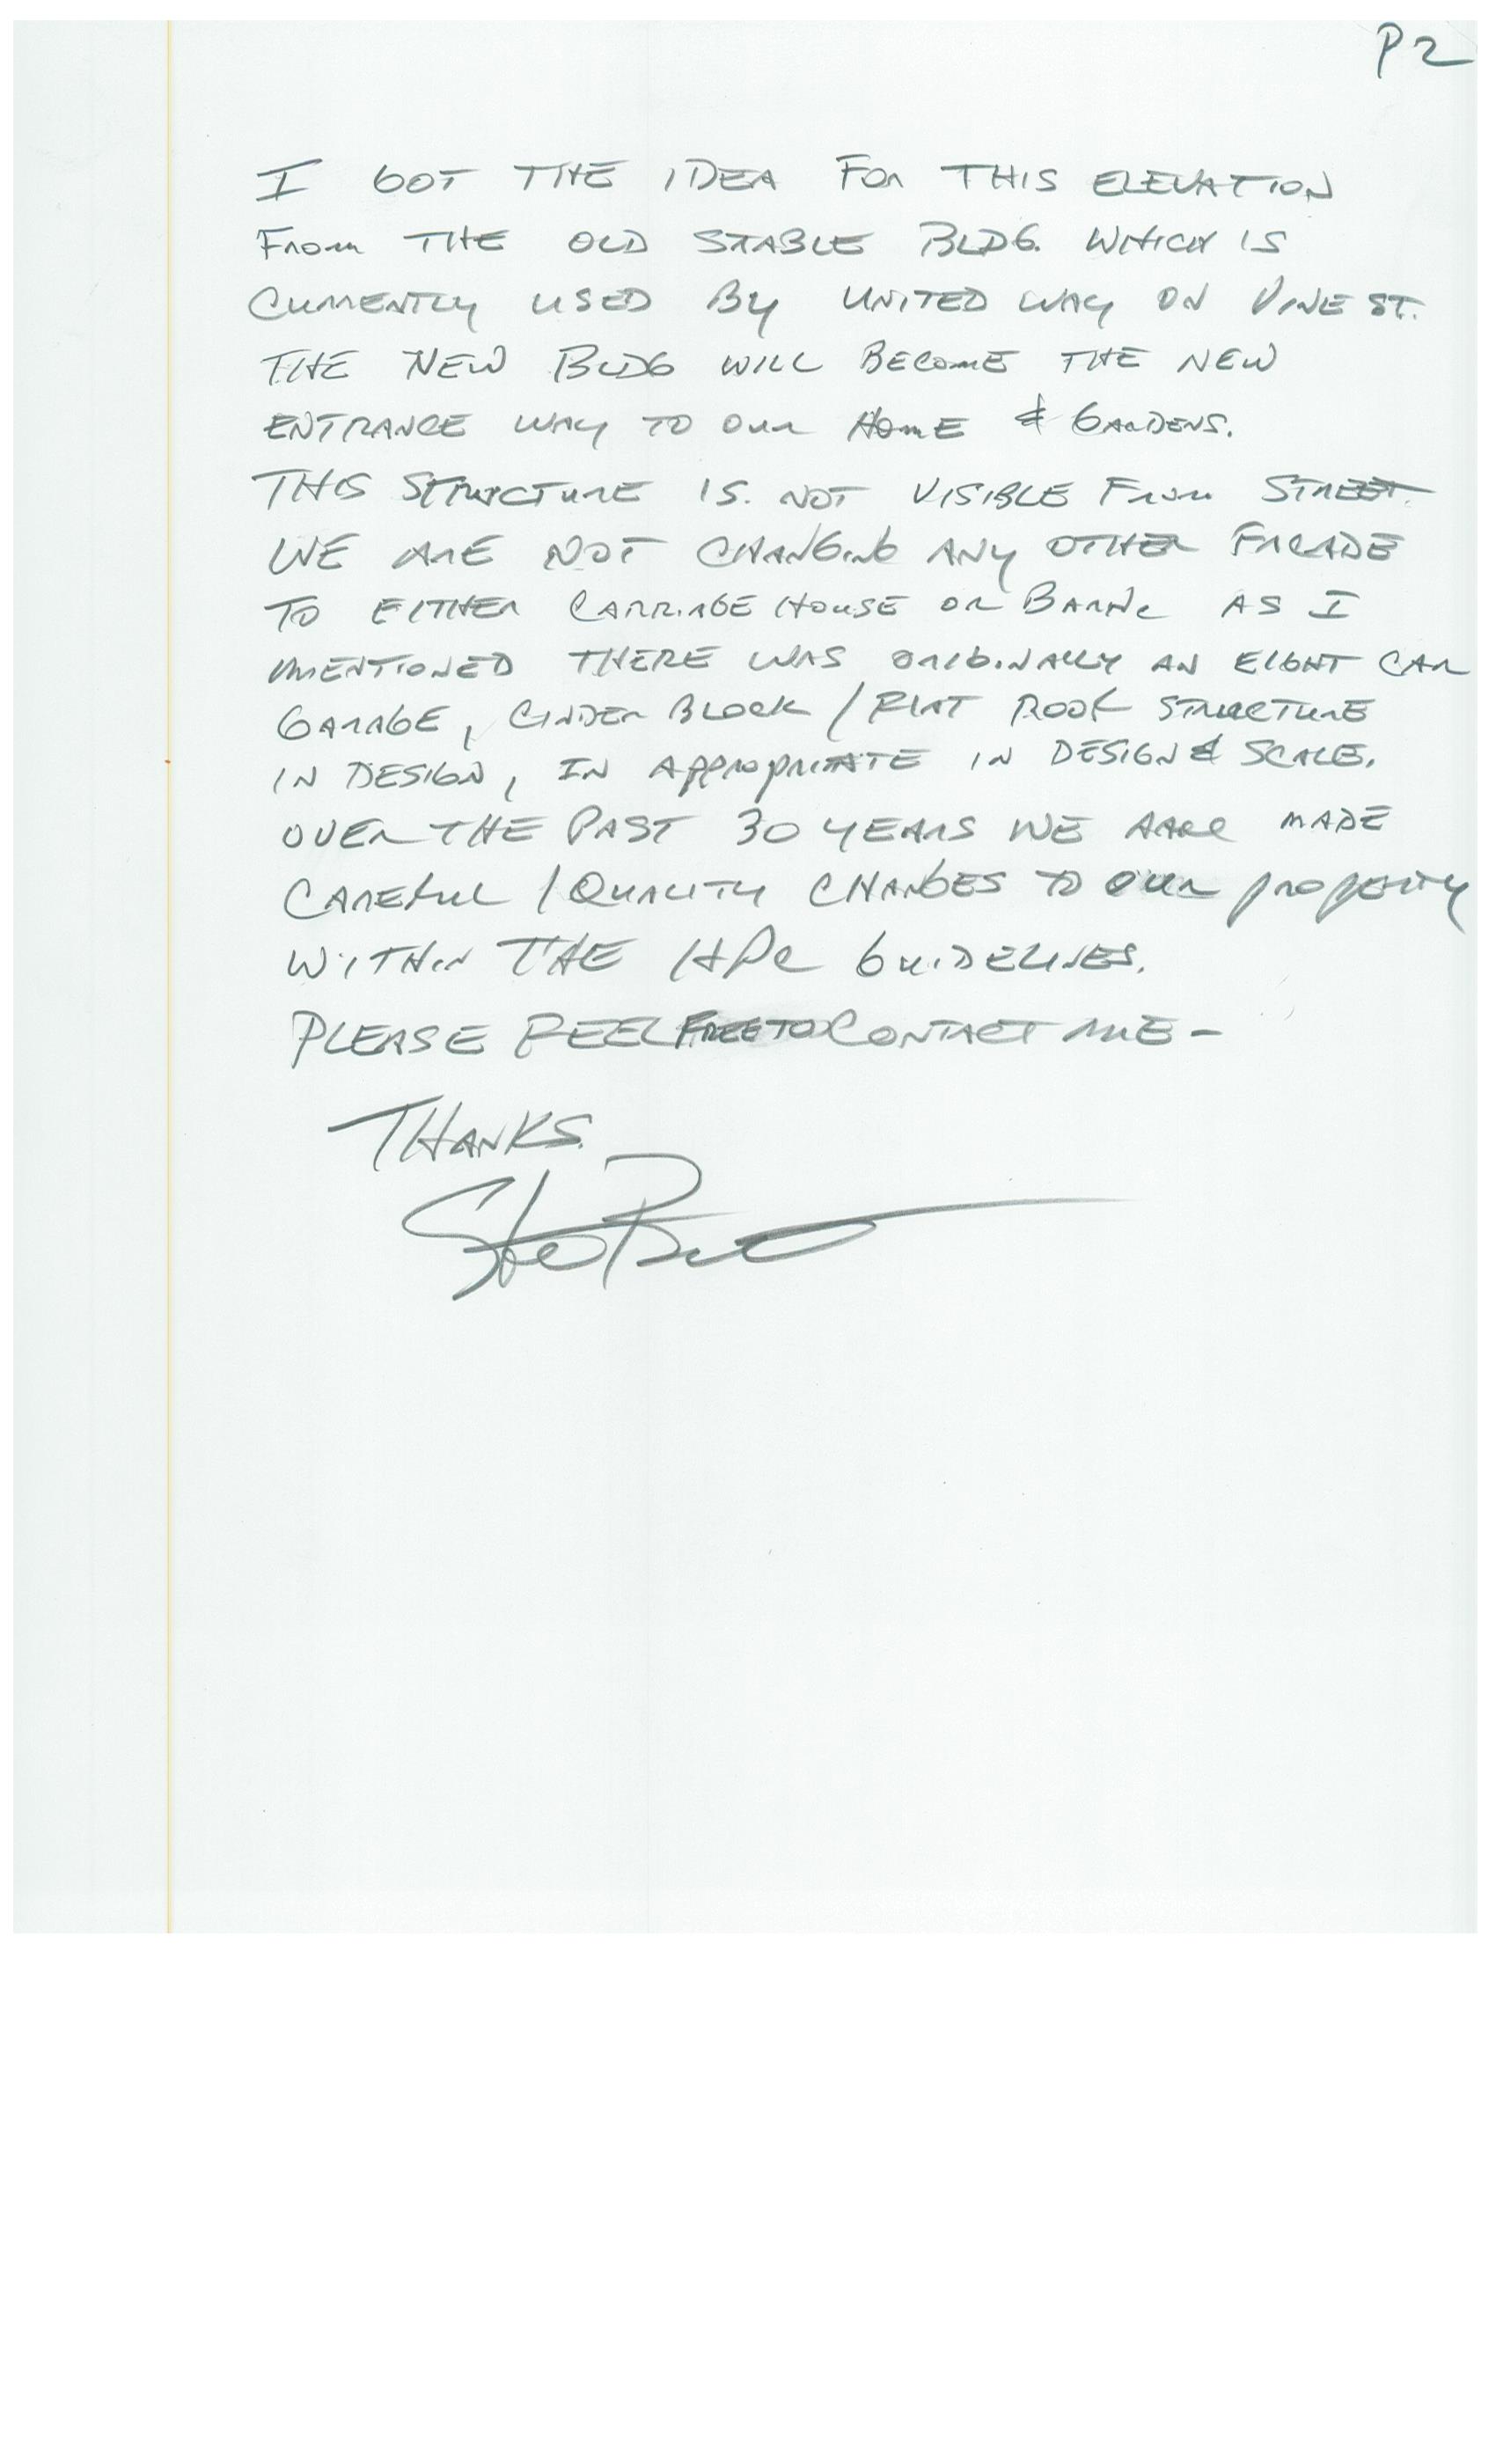 P2
I GOT THE IDEA FOR THIS ELEVATION
FROM THE OLD STABLE BLDG. WHICH IS
CURRENTLY USED BY UNITED WAY ON VINE ST.
THE NEW BLDG WILL BECOME THE NEW
ENTRANCE WAY TO OUR HOME & GARDENS.
THIS STRUCTURE IS. NOT VISIBLE FROM STREET.
WE ARE NOT CHANGING ANY OTHER FACADE
TO EITHER CARRIAGE HOUSE OR AS I
MENTIONED THERE WAS ORIGINALLY AN EIGHT CAR
GARAGE, CINDER BLOCK / FLAT ROOF STRUCTURE
IN DESIGN, IN APPROPRIATE IN DESIGN & SCALE.
OVER THE PAST 30 YEARS WE MADE
CAREFUL / QUALITY CHANGES TO OUR PROPERTY
WITHIN THE HPC GUIDELINES.
PLEASE FEEL FREE TO CONTACT ME -
THANKS.